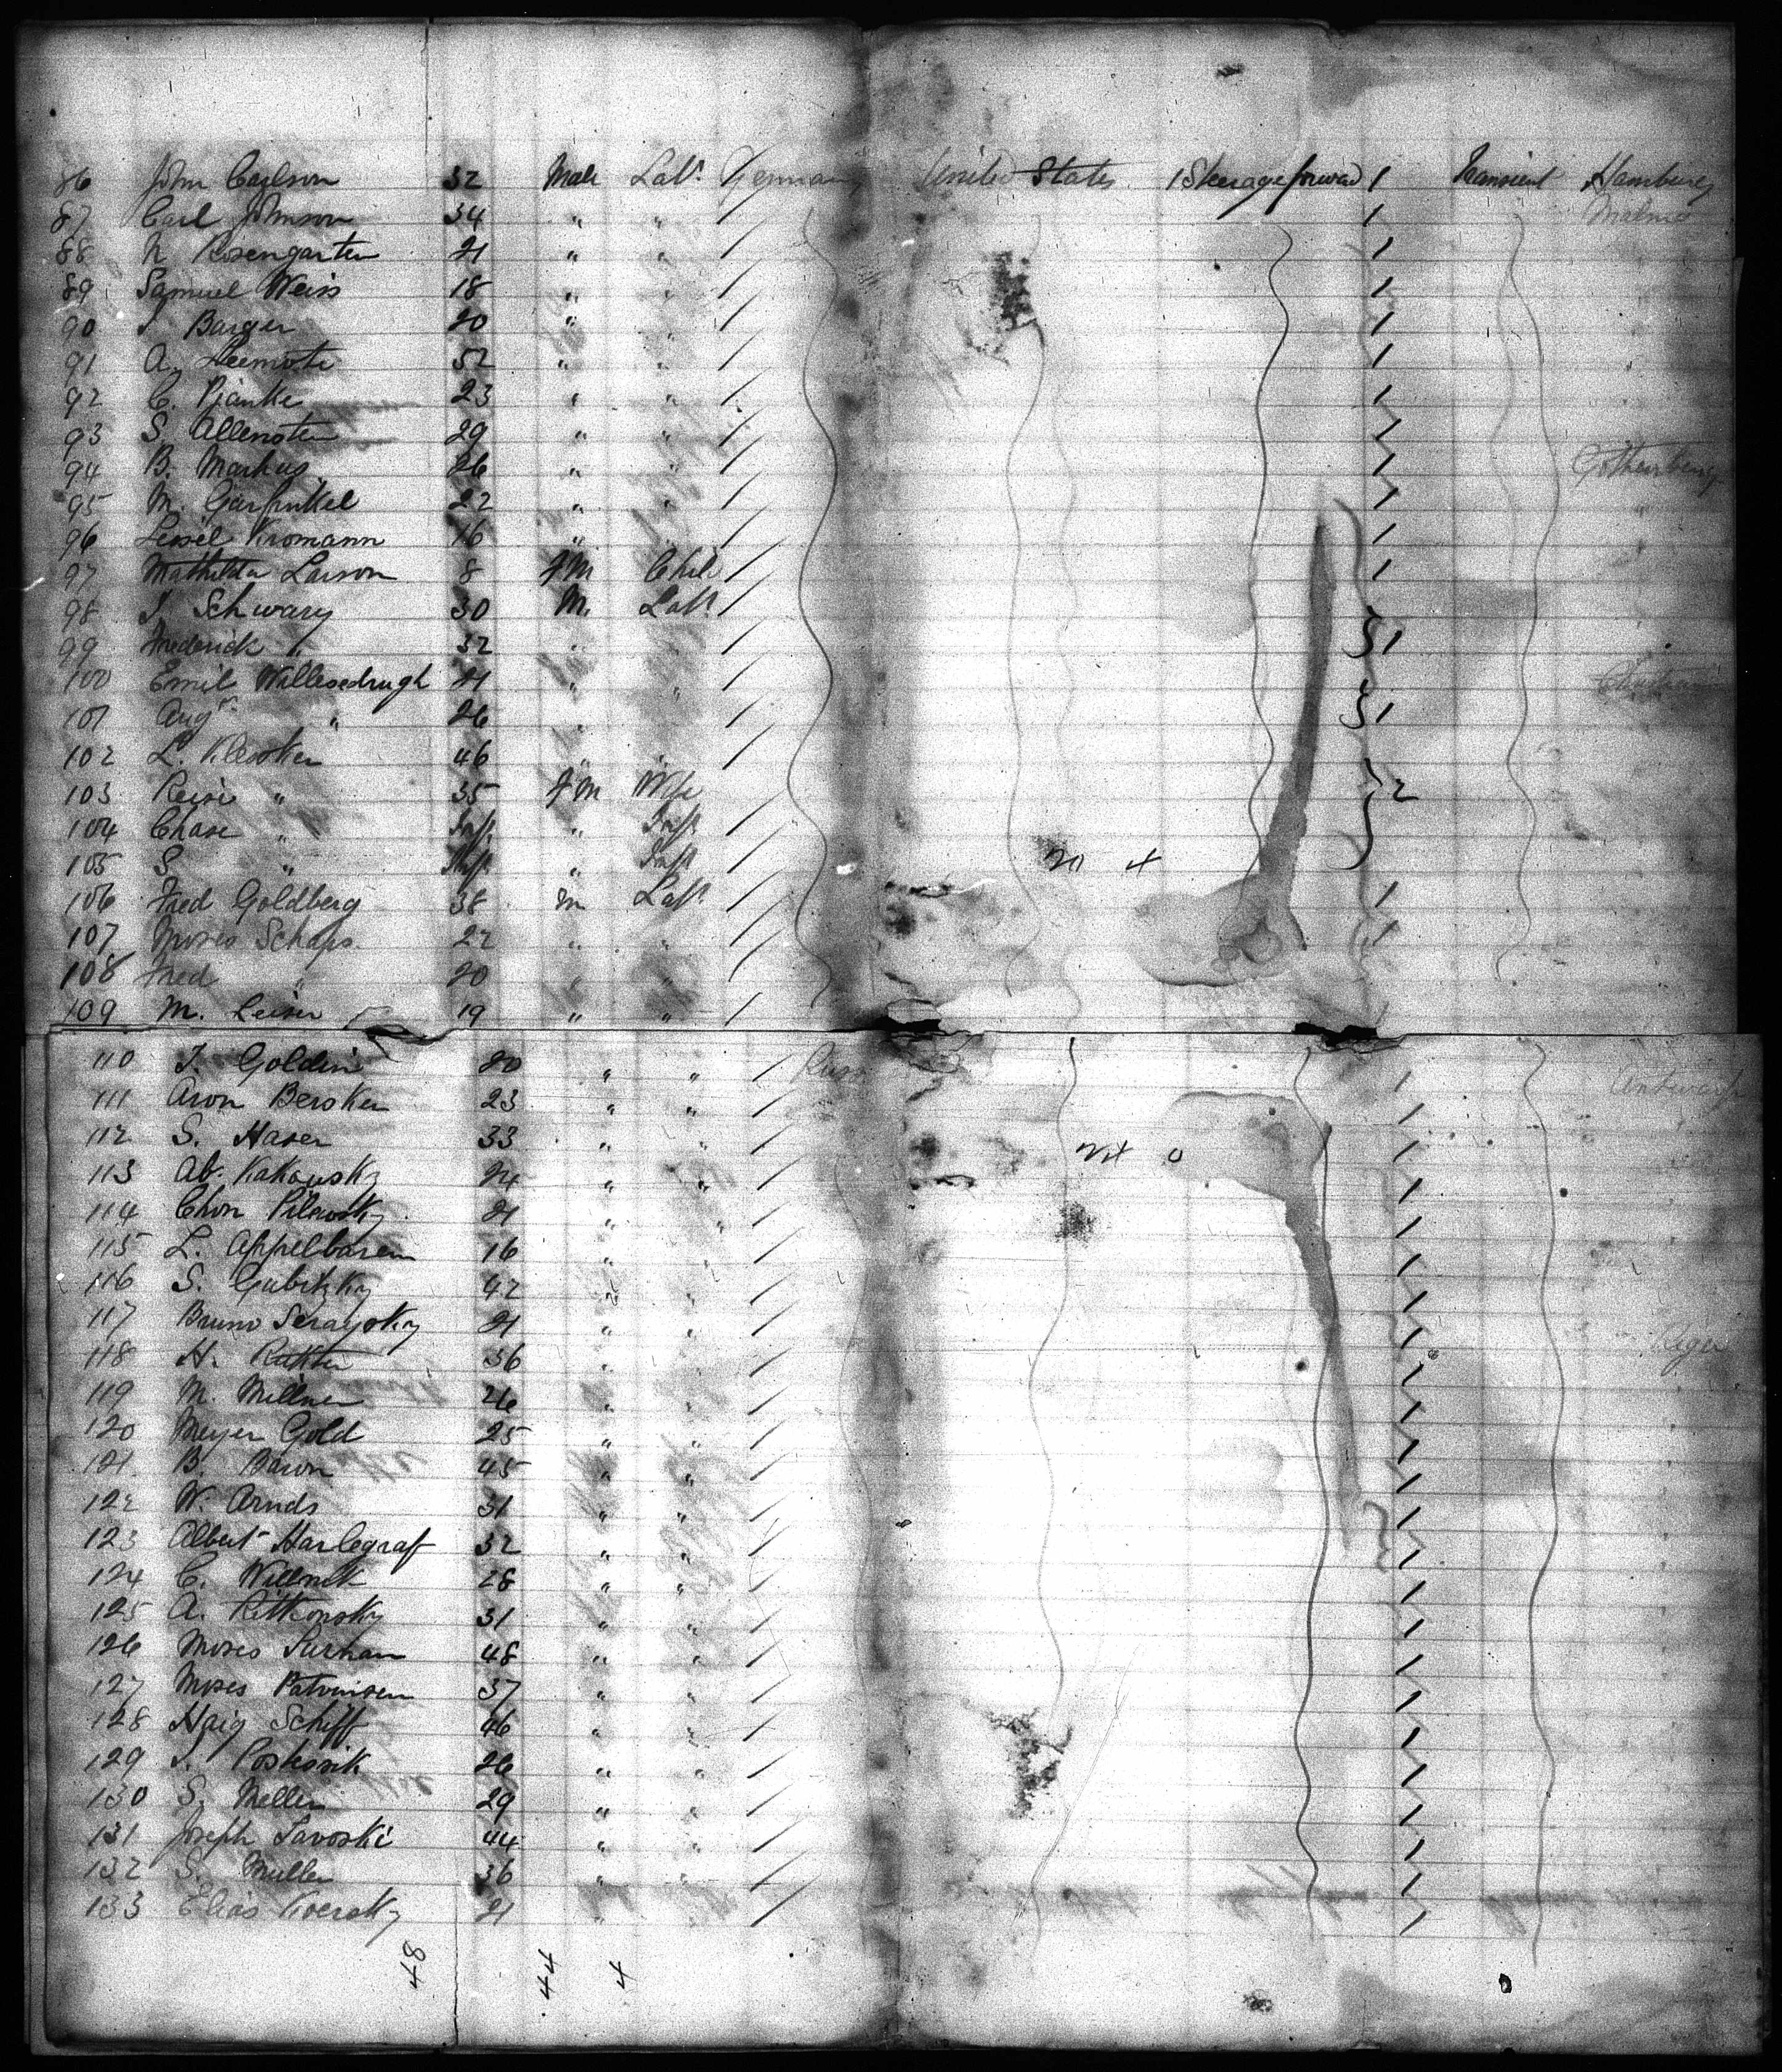 86 John Carlson 32 Male Labr. Germany United States 1 Steerage forward 1 Transient Hamburg
87 Carl Johnson 34 " " 1 Malmo
88 N Rosengarten 21 " " 1
89 Samuel Weiss 18 " " 1
90 J. Barger 20 " " 1
91 A. 52 " " 1
92 C. 23 " " 1
93 S. Allensten 29 " " 1
94 B. Markus 26 " " 1 Gothenburg
95 M. Garfinkel 22 " " 1
96 Leisel Kromann 16 " " 1
97 Mathilda Larson 8 F M Child 1
98 J. Schwarz 30 M. Labr.
99 Frederick " 32 " " 1
100 Emil 21 " "
101 Augt. " 26 " " 1
102 L. 46 " "
103 " 35 F M Wife 2
104 Chase " Inft. " Inft.
105 S. " Inft. " Inft. 20 4
106 Fred Goldberg 38 m Labr. 1
107 Moses Schaps 22 " " 1
108 Fred " 20 " "
109 M. Leiser 19 " "
110 J. Goldin 20 " " Russ 1 Antwerp
111 Aron Bersken 23 " " 1
112 S. Haser 33 " " 24 0 1
113 Ab. Kakousky 24 " " 1
114 Chon Pilewsky 21 " " 1
115 L. Appelbaum 16 " " 1
116 S. Gubitzky 42 " " 1
117 Bruno 21 " " 1 Riga
118 H. 36 " " 1
119 M. Millner 26 " " 1
120 Meyer Gold 25 " " 1
121 B. Baron 45 " " 1
122 W. Arnds 31 " " 1
123 Albert Harlegraf 32 " " 1
124 C. Willnik 28 " " 1
125 A. Ritkonsky 31 " " 1
126 Moses 48 " " 1
127 Moses 37 " " 1
128 Haig Schiff 46 " " 1
129 J. 26 " " 1
130 S. Meller 29 " " 1
131 Joseph Savoski 44 " " 1
132 S. Muller 36 " " 1
133 Elias 21 " " 1
48 44 4